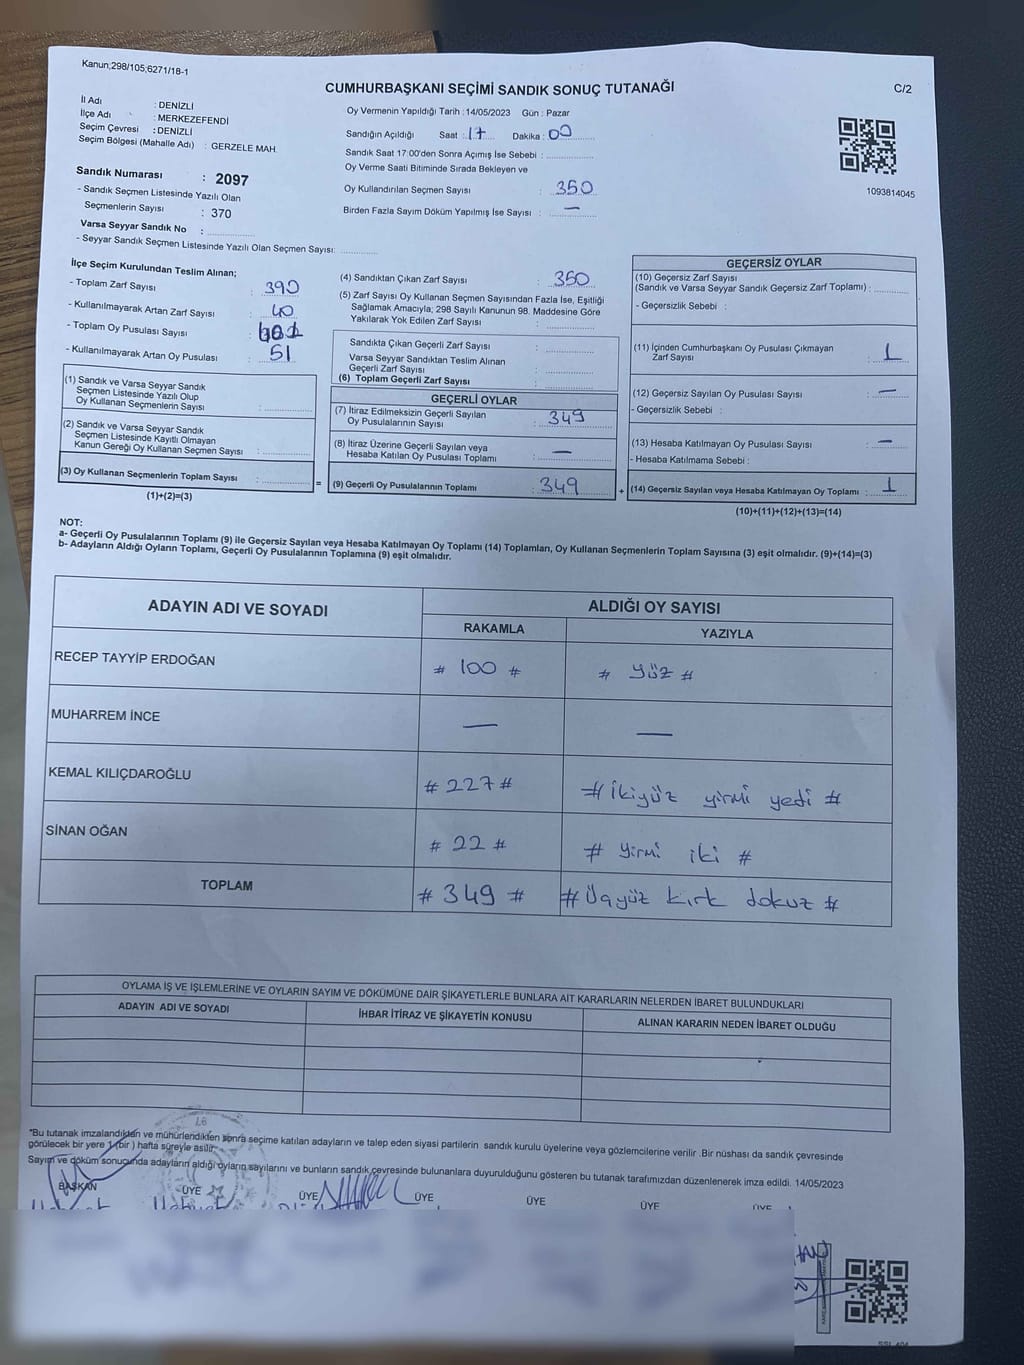 Kanun;298/105;6271/18-1
CUMHURBAŞKANI SEÇİMİ SANDIK SONUÇ TUTANAĞI
C/2
İl Adı : DENİZLİ
İlçe Adı : MERKEZEFENDİ
Seçim Çevresi : DENİZLİ
Seçim Bölgesi (Mahalle Adı) : GERZELE MAH.
Oy Vermenin Yapıldığı Tarih : 14/05/2023 Gün : Pazar
Sandığın Açıldığı Saat : 17 Dakika : 00
Sandık Saat 17:00'den Sonra Açımış İse Sebebi :
Oy Verme Saati Bitiminde Sırada Bekleyen ve
Oy Kullandırılan Seçmen Sayısı : 350
Birden Fazla Sayım Döküm Yapılmış İse Sayısı : —
1093814045
Sandık Numarası : 2097
- Sandık Seçmen Listesinde Yazılı Olan
Seçmenlerin Sayısı : 370
Varsa Seyyar Sandık No :
- Seyyar Sandık Seçmen Listesinde Yazılı Olan Seçmen Sayısı:
İlçe Seçim Kurulundan Teslim Alınan;
- Toplam Zarf Sayısı : 390
- Kullanılmayarak Artan Zarf Sayısı : 40
- Toplam Oy Pusulası Sayısı :
- Kullanılmayarak Artan Oy Pusulası : 51
(1) Sandık ve Varsa Seyyar Sandık
Seçmen Listesinde Yazılı Olup
Oy Kullanan Seçmenlerin Sayısı :
(2) Sandık ve Varsa Seyyar Sandık
Seçmen Listesinde Kayıtlı Olmayan
Kanun Gereği Oy Kullanan Seçmen Sayısı :
(3) Oy Kullanan Seçmenlerin Toplam Sayısı :
(1)+(2)=(3)
=
(4) Sandıktan Çıkan Zarf Sayısı : 350
(5) Zarf Sayısı Oy Kullanan Seçmen Sayısından Fazla İse, Eşitliği
Sağlamak Amacıyla; 298 Sayılı Kanunun 98. Maddesine Göre
Yakılarak Yok Edilen Zarf Sayısı :
Sandıkta Çıkan Geçerli Zarf Sayısı :
Varsa Seyyar Sandıktan Teslim Alınan
Geçerli Zarf Sayısı :
(6) Toplam Geçerli Zarf Sayısı :
GEÇERLİ OYLAR
(7) İtiraz Edilmeksizin Geçerli Sayılan
Oy Pusulalarının Sayısı : 349
(8) İtiraz Üzerine Geçerli Sayılan veya
Hesaba Katılan Oy Pusulası Toplamı : —
(9) Geçerli Oy Pusulalarının Toplamı : 349
+
GEÇERSİZ OYLAR
(10) Geçersiz Zarf Sayısı
(Sandık ve Varsa Seyyar Sandık Geçersiz Zarf Toplamı) :
- Geçersizlik Sebebi :
(11) İçinden Cumhurbaşkanı Oy Pusulası Çıkmayan
Zarf Sayısı : 1
(12) Geçersiz Sayılan Oy Pusulası Sayısı : —
- Geçersizlik Sebebi :
(13) Hesaba Katılmayan Oy Pusulası Sayısı : —
- Hesaba Katılmama Sebebi :
(14) Geçersiz Sayılan veya Hesaba Katılmayan Oy Toplamı : 1
(10)+(11)+(12)+(13)=(14)
NOT:
a- Geçerli Oy Pusulalarının Toplamı (9) ile Geçersiz Sayılan veya Hesaba Katılmayan Oy Toplamı (14) Toplamları, Oy Kullanan Seçmenlerin Toplam Sayısına (3) eşit olmalıdır. (9)+(14)=(3)
b- Adayların Aldığı Oyların Toplamı, Geçerli Oy Pusulalarının Toplamına (9) eşit olmalıdır.
ADAYIN ADI VE SOYADI
ALDIĞI OY SAYISI
RAKAMLA YAZIYLA
RECEP TAYYİP ERDOĞAN # 100 # # yüz #
MUHARREM İNCE — —
KEMAL KILIÇDAROĞLU # 227 # # ikiyüz yirmi yedi #
SİNAN OĞAN # 22 # # yirmi iki #
TOPLAM # 349 # # Üçyüz kırk dokuz #
OYLAMA İŞ VE İŞLEMLERİNE VE OYLARIN SAYIM VE DÖKÜMÜNE DAİR ŞİKAYETLERLE BUNLARA AİT KARARLARIN NELERDEN İBARET BULUNDUKLARI
ADAYIN ADI VE SOYADI İHBAR İTİRAZ VE ŞİKAYETİN KONUSU ALINAN KARARIN NEDEN İBARET OLDUĞU
"Bu tutanak imzalandıkten ve mühürlendikten sonra seçime katılan adayların ve talep eden siyasi partilerin sandık kurulu üyelerine veya gözlemcilerine verilir .Bir nüshası da sandık çevresinde
görülecek bir yere 1 (bir ) hafta süreyle asılır.
Sayım ve döküm sonucunda adayların aldığı oyların sayılarını ve bunların sandık çevresinde bulunanlara duyurulduğunu gösteren bu tutanak tarafımızdan düzenlenerek imza edildi. 14/05/2023
BAŞKAN ÜYE ÜYE ÜYE ÜYE ÜYE ÜYE